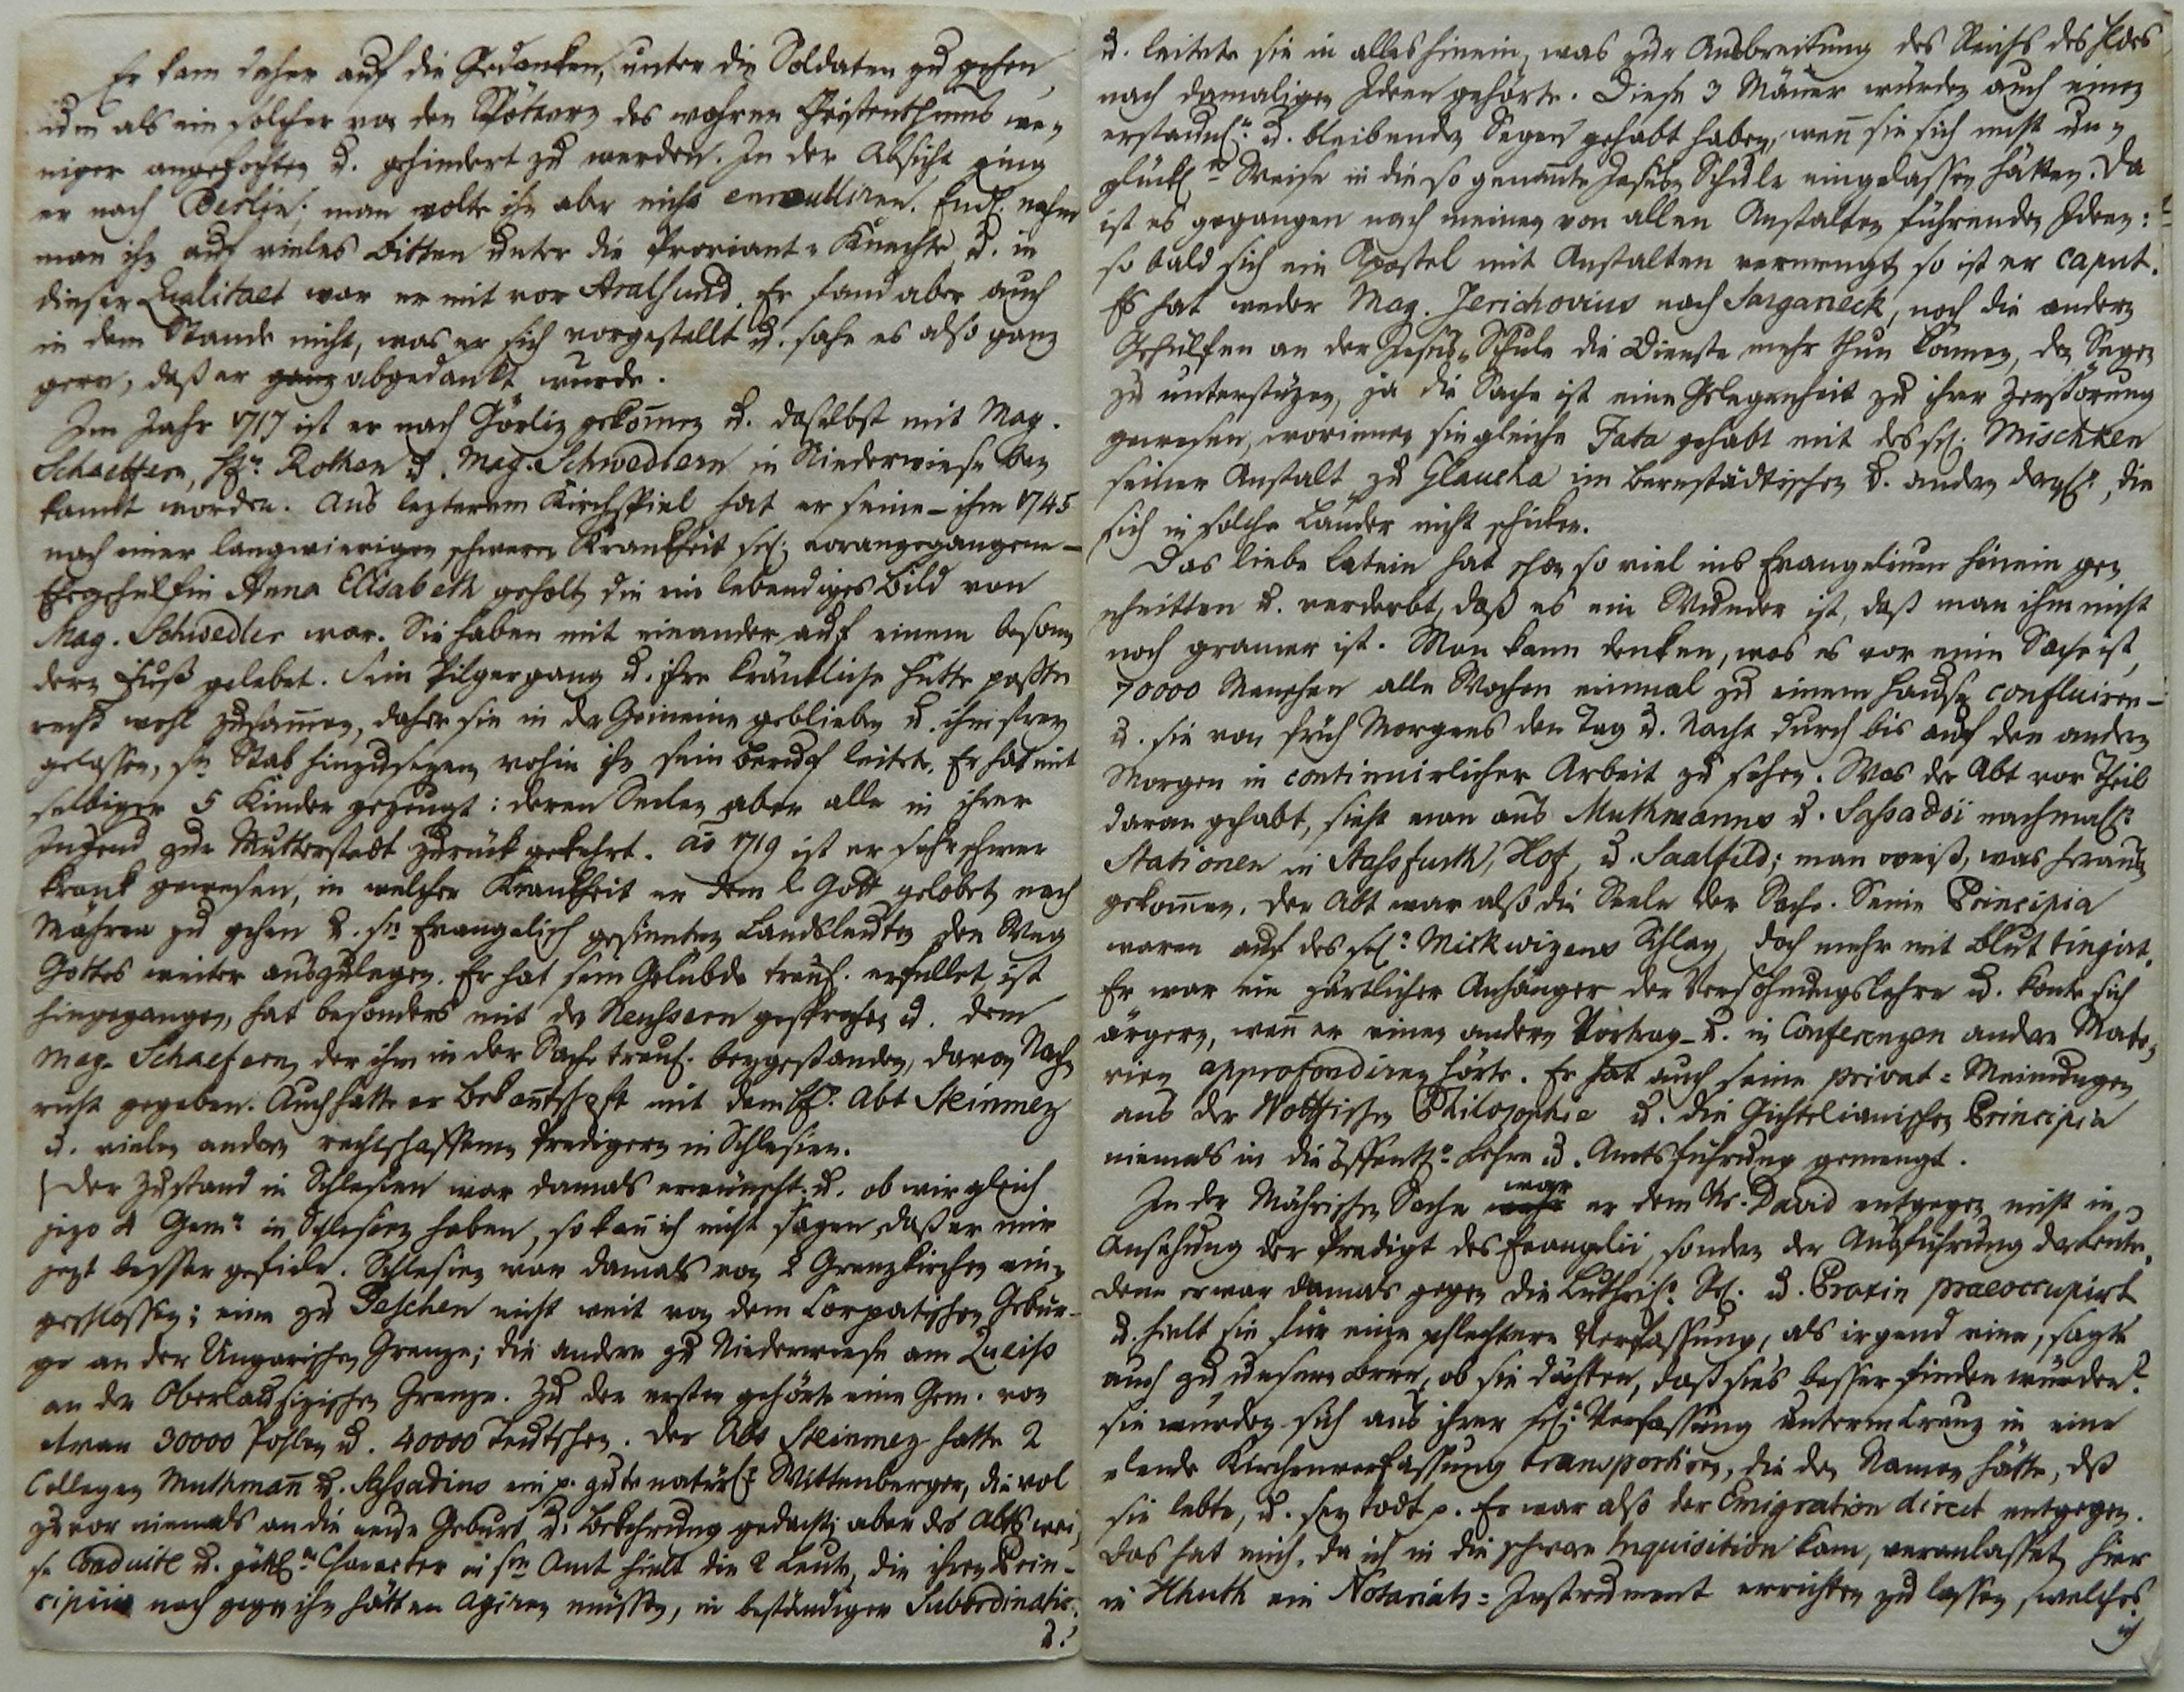 Er kam daher auf die Gedanken, unter die Soldaten zu gehen,
um als ein solcher von den Spöttern des wahren Christenthums we-
niger angefochten u. gehindert zu werden. In der Absicht ging
er nach Berlin; man wolte ihn aber nicht enroulliren. Endl. nahm
man ihn auf vieles Bitten unter die Proviant-Knechte, u. in
dieser Qualitaet war er mit vor Stralsund. Er fand aber auch
in dem Stande nicht, was er sich vorgestellt u. sahe es also ganz
gern, daß er ganz abgedankt wurde.
Im Jahr 1717 ist er nach Görliz gekom̄en u. daselbst mit Mag.
Schaeffern, Hrn. Rothen u. Mag. Schwedlern in Niederwiese be-
kannt worden. Aus lezterem Kirchspiel hat er seine – ihm 1745
nach einer langwierigen schweren Krankheit sel. vorangegangene –
Ehegehülfin Anna Elisabeth geholt, die ein lebendiges Bild von
Mag. Schwedler war. Sie haben mit einander auf einem beson-
dern Fuß gelebet. Sein Pilgergang u. ihre kränkliche Hütte paßte
recht wohl zusam̄en, daher sie in der Gemeine geblieben u. ihm frey
gelassen, sn Stab hinzusezen, wohin ihn sein Beruf leitete. Er hat mit
selbiger 5 Kinder gezeugt: deren Seelen aber alle in ihrer
Jugend zur Mutterstadt zurückgekehrt. Ao 1719 ist er sehr schwer
krank gewesen, in welcher Krankheit er dem l. Gott gelobet, nach
Mähren zu gehen u. sn Evangelisch gesinnten Landsleuten den Weg
Gottes weiter auszulegen. Er hat sein Gelübde treul. erfüllet, ist
hingegangen, hat besonders mit den Neussern gesprochen u. dem
Mag. Schaefern, der ihm in der Sache treul. beygestanden, davon Nach-
richt gegeben. Auch hatte er Bekan̄tschaft mit dem H. Abt Steinmez
u. vielen andern rechtschaffenen Predigern in Schlesien.
(Der Zustand in Schlesien war damals erwünscht u. ob wir gleich
jezo 4 Gemn in Schlesien haben, so kan̄ ich nicht sagen, daß er mir
jezt besser gefiele. Schlesien war damals von 2 Grenzkirchen ein-
geschlossen; eine zu Teschen nicht weit von dem Carpatischen Gebür-
ge an der Ungarischen Grenze; die andere zu Niederwiese am Queiss
an der Oberlausizischen Grenze. Zu der ersten gehörte eine Gem. von
etwan 30000 Pohlen u. 40000 Teutschen. Der Abt Steinmez hatte 2
Collegen Muthman̄ u. Sassadius ein p. gute natürl. Wittenberger, die wol
zuvor niemals an die neue Geburt u. Bekehrung gedacht; aber des Abts wei-
se Conduite u. göttl. Character in sm Amt hielt die 2 Leute, die ihren Prin-
cipiis nach gegen ihn hätten agiren müssen, in beständiger Subordination
u.
u. leitete sie in alles hinein, was zur Ausbreitung des Reichs des Hldes
nach damaligen Ideen gehörte. Diese 3 Män̄er würden auch einen
erstaunl. u. bleibenden Segen gehabt haben, wen̄ sie sich nicht un-
glückl. Weise in die so genan̄te Jesus Schule eingelassen hätten. Da
ist es gegangen nach meinen von allen Anstalten führenden Ideen:
so bald sich ein Apostel mit Anstalten vermengt, so ist er caput.
Es hat weder Mag. Jerichovius noch Sarganeck, noch die andern
Gehülfen an der Jesus-Schule die Dienste mehr thun können, den Segen
zu unterstüzen, ja die Sache ist eine Gelegenheit zu ihrer Zerstörung
gewesen, worinnen sie gleiche Fata gehabt mit des sel. Mischken
seiner Anstalt zu Glaucha im Bernstädtischen u. andern dergl., die
sich in solche Länder nicht schicken.
Das liebe Latein hat schon so viel ins Evangelium hinein ge-
schnitten u. verderbt, daß es ein Wunder ist, daß man ihm nicht
noch gramer ist. Man kann denken, was es vor eine Sache ist,
70000 Menschen alle Wochen einmal zu einem Hause confluiren –
u. sie von früh Morgens den Tag u. Nacht durch bis auf den andern
Morgen in continuirlicher Arbeit zu sehen. Was der Abt vor Theil
daran gehabt, sieht man aus Muthmanns u. Sassadii nachmal.
Stationen in Stassfurth, Hof, u. Saalfeld; man weiß, was heraus
gekom̄en. Der Abt war also die Seele der Sache. Seine Principia
waren auf des sel. Mickwizens Schlag, doch mehr mit Blut tingirt.
Er war ein zärtlicher Anhänger der Versöhnungslehre u. konte sich
ärgern, wen̄ er einen andern Vortrag – u. in Conferenzen andere Mate-
rien approfondiren hörte. Er hat auch seine privat-Meinungen
aus der Wolffischen Philosophie u. die Gichtelianischen Principia
niemals in die öffentl. Lehre u. Amtsführung gemengt.
In der Mährischen Sache war er dem Chr. David entgegen nicht in
Ansehung der Predigt des Evangelii, sondern der Ausführung der Leute,
denn er war damals gegen die Luthrisch. Rel. u. Praxin praeoccupirt
u. hielt sie für eine schlechtere Verfassung, als irgend eine, sagte
auch zu unsern Brn, ob sie dächten, daß sie's besser finden würden?
sie würden sich aus ihrer sel. Verfassung unterm Creuz in eine
elende Kirchenverfassung transportiren, die den Namen hätte, dß
sie lebte, u. sey todt p. Er war also der Emigration direct entgegen.
Das hat mich, da ich in die schwere Inquisition kam, veranlasset, hier
in Hhuth ein Notariats-Instrument errichten zu lassen, welches
ich